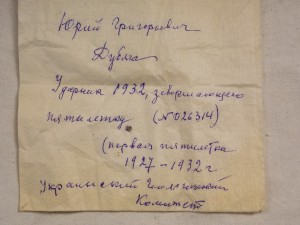 Юрий Григорьевич
Дубяга
Ударник 1932, завершающего
пятилетку (№026314)
(первая пятилетка
1927-1932 г
Украинский
Комитет